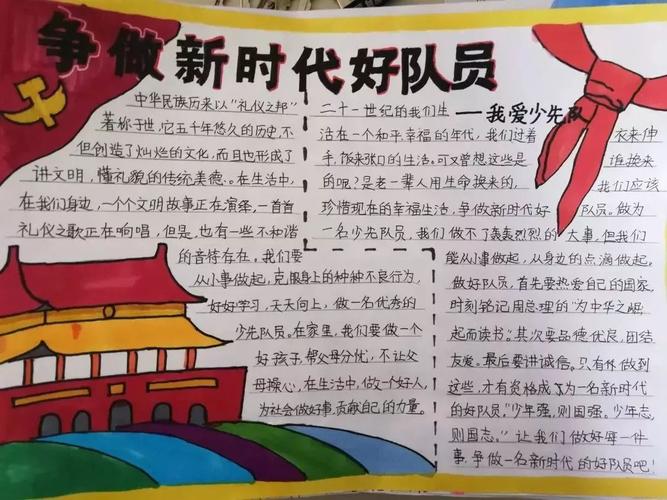 争做新时代好队员
——我爱少先队
中华民族历来以“礼仪之邦”
著称于世,它五千年悠久的历史,不
但创造了灿烂的文化,而且也形成了
讲文明,懂礼貌的传统美德。在生活中,
在我们身边,一个个文明故事正在演绎,一首首
礼仪之歌正在响唱,但是,也有一些不和谐
的音符存在。我们要
从小事做起,克服身上的种种不良行为,
好好学习,天天向上,做一名优秀的
少先队员。在家里,我们要做一个
好孩子,帮父母分忧,不让父
母操心,在生活中,做一个好人,
为社会做好事,贡献自己的力量。
二十一世纪的我们生
活在一个和平,幸福的年代,我们过着 衣来伸
手,饭来张口的生活。可又曾想这些是 谁换来
的呢?是老一辈人用生命换来的, 我们应该
珍惜现在的幸福生活,争做新时代好 队员。做为
一名少先队员,我们做不了轰轰烈烈的 大事,但我们
能从小事做起,从身边的点滴做起。
做好队员,首先要热爱自己的国家,
时刻铭记周总理的“为中华之崛
起而读书”。其次要品德优良,团结
友爱。最后要讲诚信。只有休做到
这些,才有资格成了为一名新时代
的好队员。“少年强,则国强。少年志,
则国志。”让我们做好每一件
事,争做一名新时代的好队员吧!